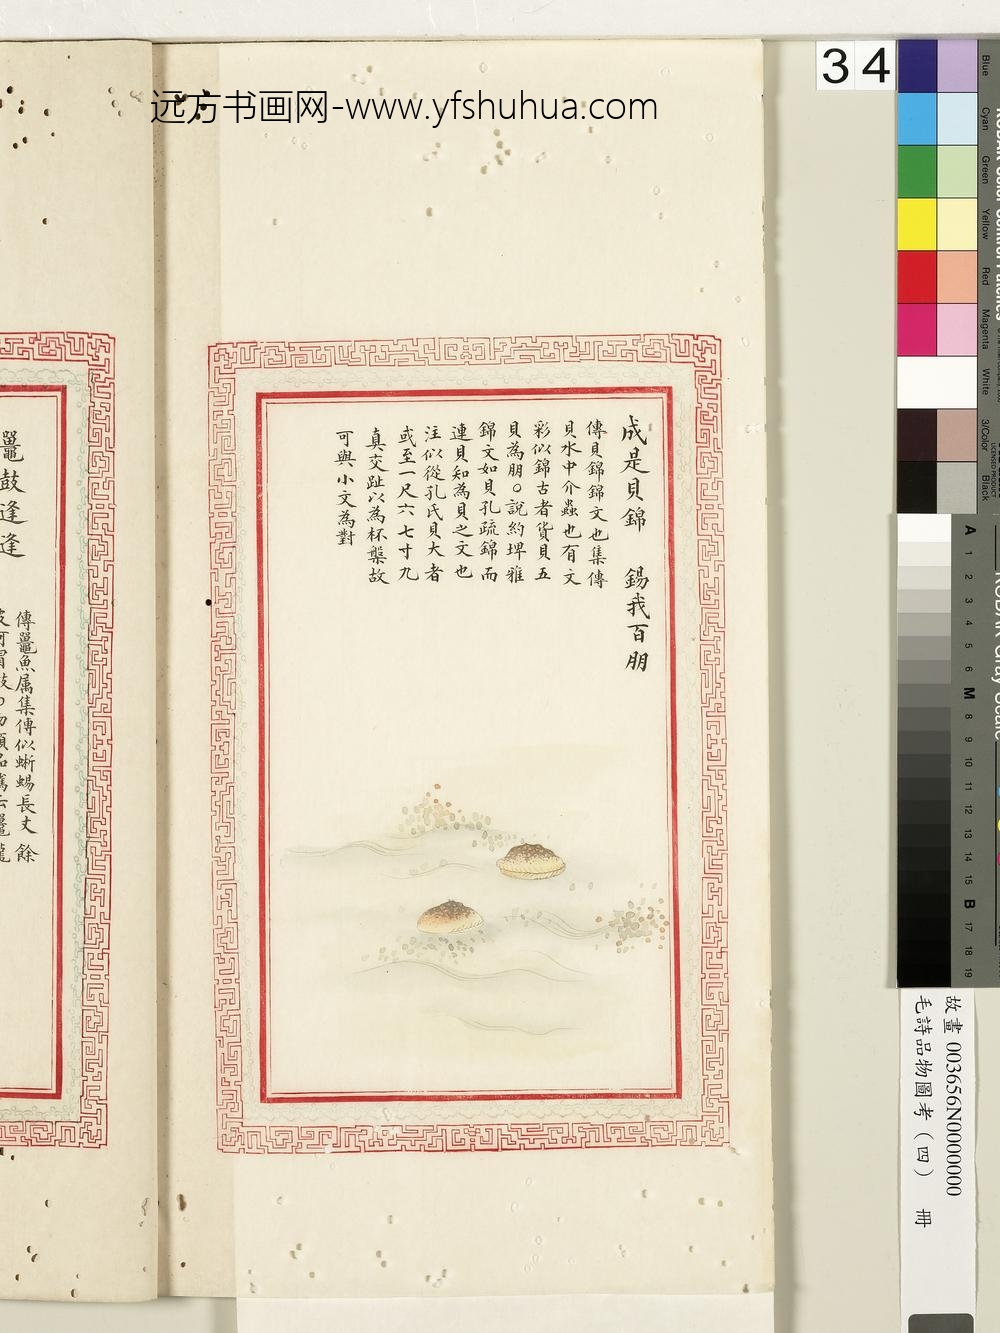 远方书画网-www.yfshuhua.com
34
成是貝錦　錫我百朋
傳貝錦錦文也集傳
貝水中介蟲也有文
彩似錦古者貨貝五
貝為朋○說約埤雅
錦文如貝孔疏錦而
連貝知為貝之文也
注似從孔氏貝大者
或至一尺六七寸九
真交趾以為杯槃故
可與小文為對
鼉鼓逢逢
傳鼉魚属集傳似蜥蜴長丈餘
Blue
Cyan
Green
Yellow
Red
Magenta
White
3/Color
Black
A 1 2 3 4 5 6 M 8 9 10 11 12 13 14 15 B 17 18 19
故畫 003656N0000000
毛詩品物圖考（四）　冊